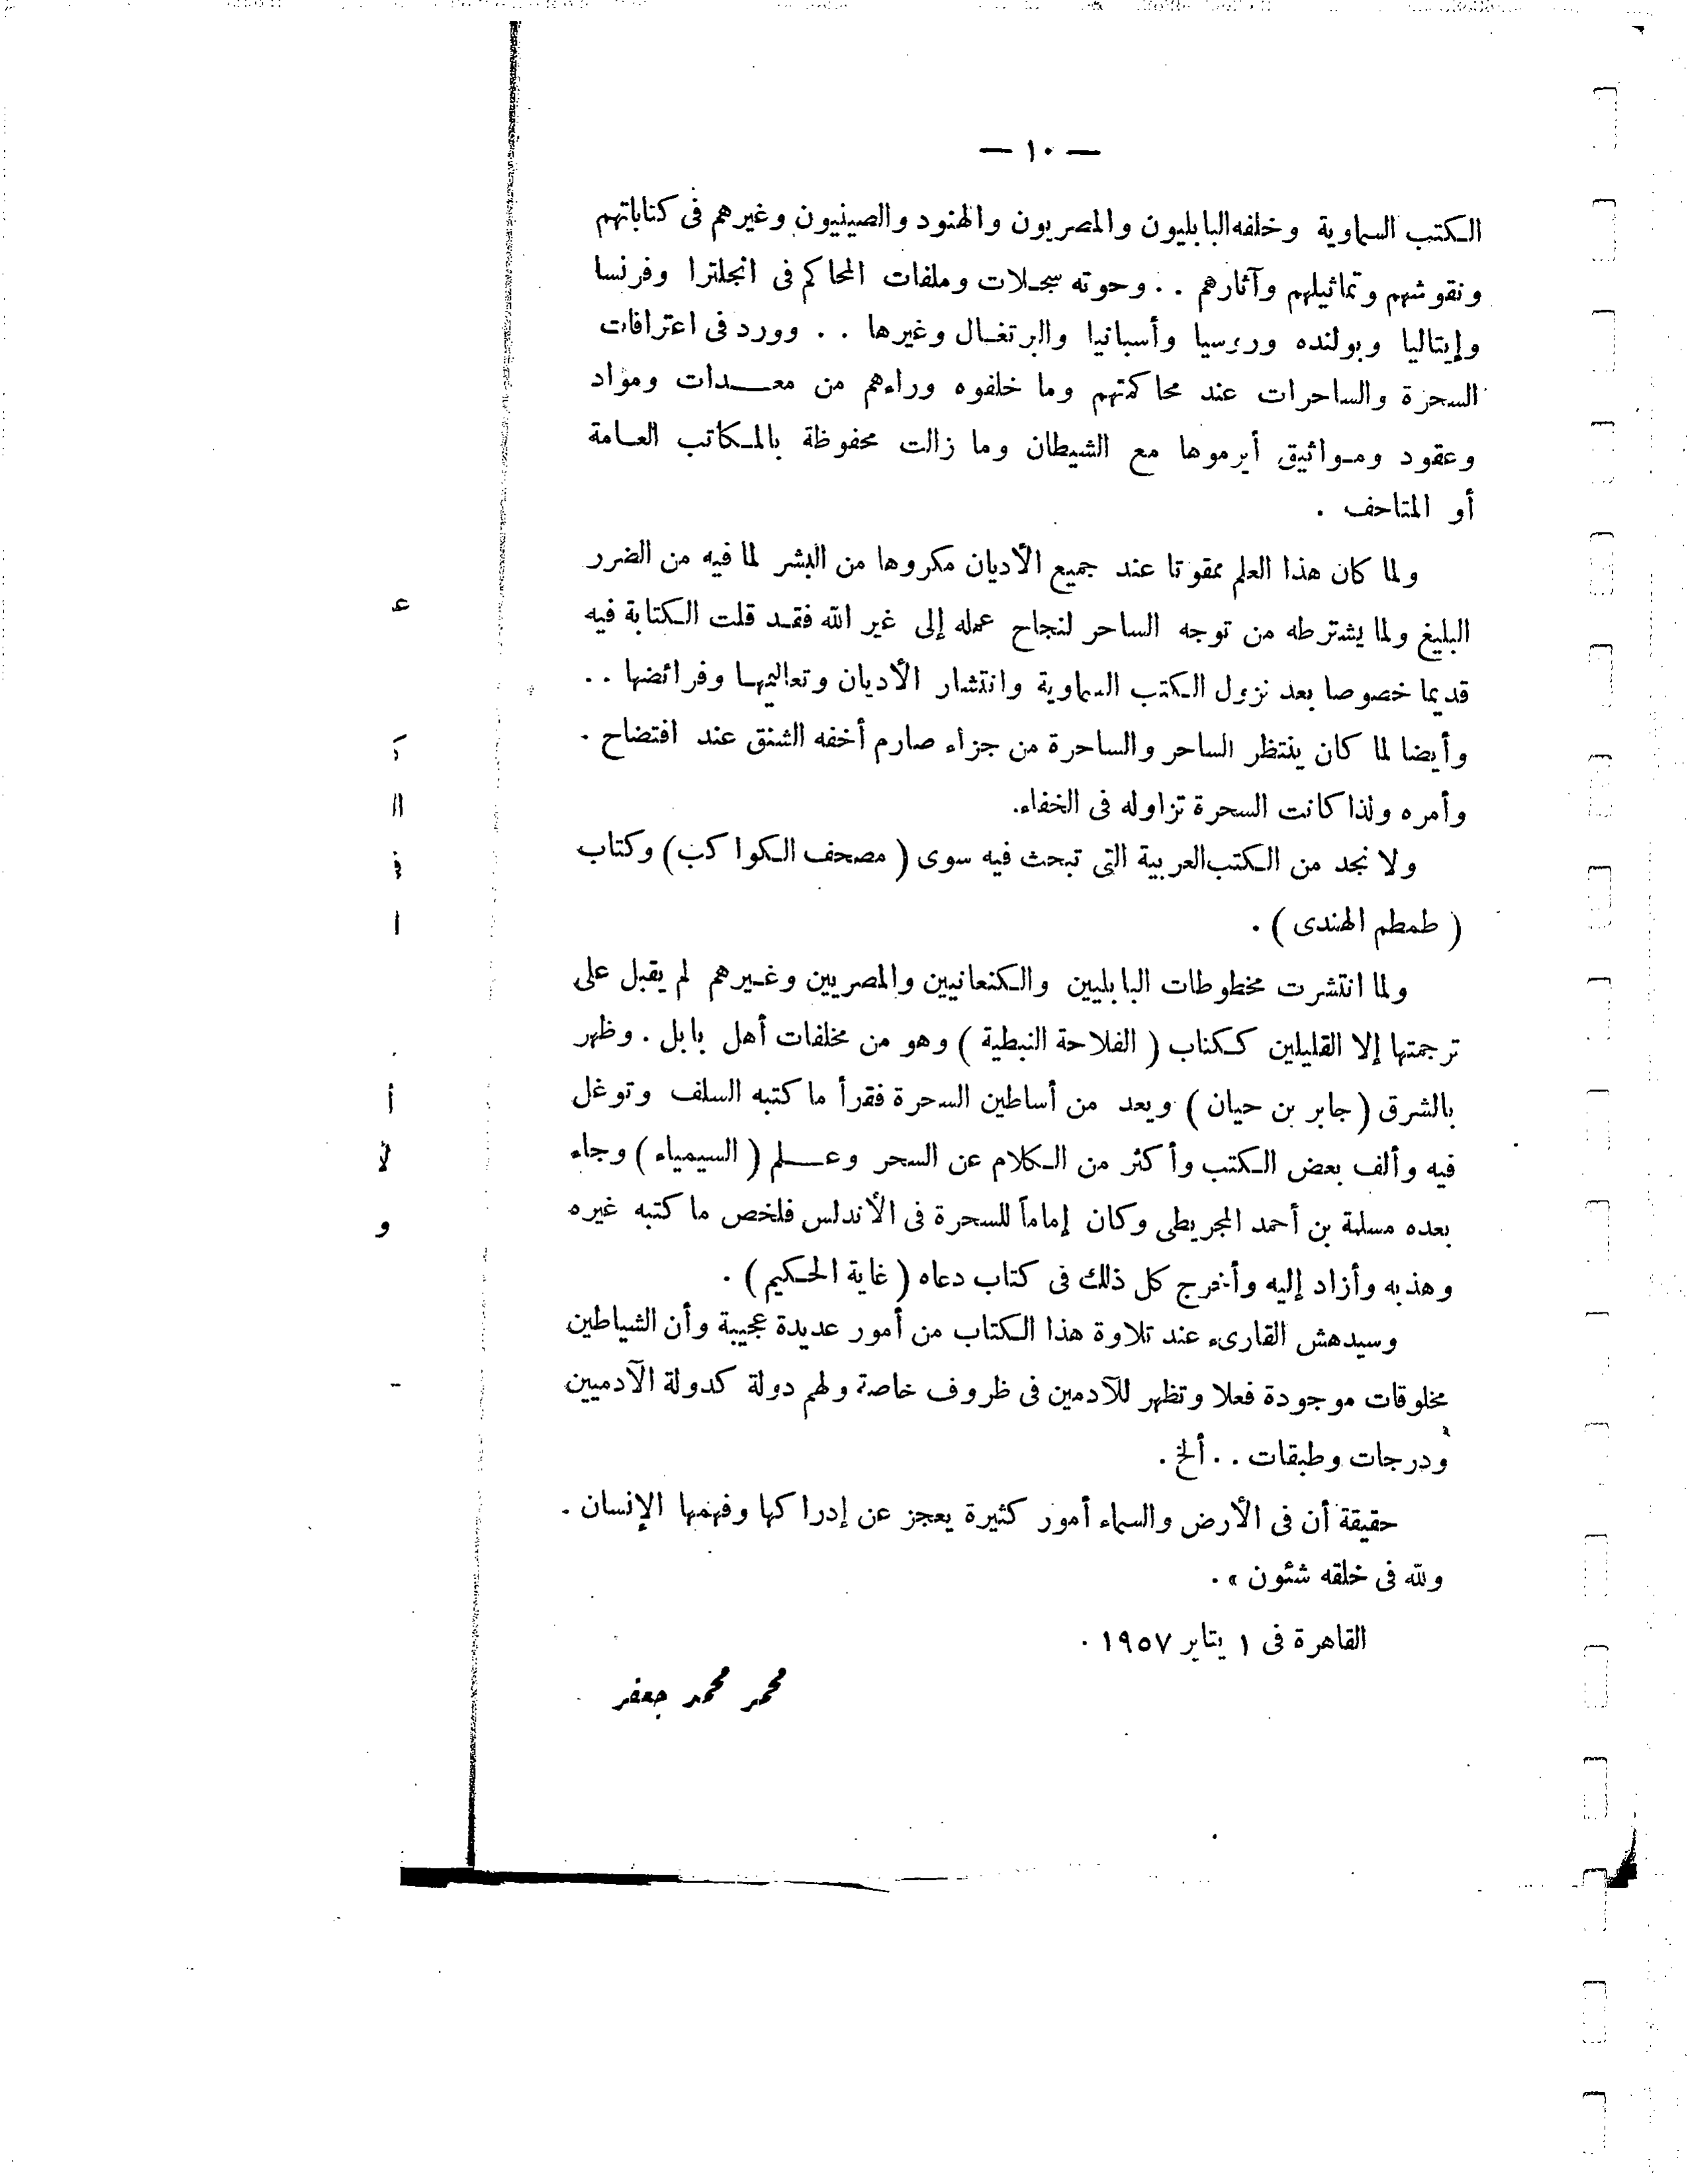 — ١٠ —
الكتب السماوية وخلفه البابليون والمصريون والهنود والصينيون وغيرهم فى كتاباتهم
ونقوشهم وتماثيلهم وآثارهم . . وحوته سجلات وملفات المحاكم فى انجلترا وفرنسا
وإيتاليا وبولنده وروسيا وأسبانيا والبرتغال وغيرها . . وورد فى اعترافات
السحرة والساحرات عند محاكمتهم وما خلفوه وراءهم من معدات ومواد
وعقود ومواثيق أبرموها مع الشيطان وما زالت محفوظة بالمكاتب العامة
أو المتاحف .
ولما كان هذا العلم ممقوتا عند جميع الأديان مكروها من البشر لما فيه من الضرر
البليغ ولما يشترطه من توجه الساحر لنجاح عمله إلى غير الله فقد قلت الكتابة فيه
قديما خصوصا بعد نزول الكتب السماوية وانتشار الأديان وتعاليمها وفرائضها . .
وأيضا لما كان ينتظر الساحر والساحرة من جزاء صارم أخفه الشنق عند افتضاح .
وأمره ولذا كانت السحرة تزاوله فى الخفاء.
ولا نجد من الكتب العربية التى تبحث فيه سوى ( مصحف الكواكب ) وكتاب
( طمطم الهندى ) .
ولما انتشرت مخطوطات البابليين والكنعانيين والمصريين وغيرهم لم يقبل على
ترجمتها إلا القليلين ككتاب ( الفلاحة النبطية ) وهو من مخلفات أهل بابل . وظهر
بالشرق ( جابر بن حيان ) ويعد من أساطين السحرة فقرأ ما كتبه السلف وتوغل
فيه وألف بعض الكتب وأكثر من الكلام عن السحر وعلم ( السيمياء ) وجاء
بعده مسلمة بن أحمد المجريطى وكان إماماً للسحرة فى الأندلس فلخص ما كتبه غيره
وهذبه وأزاد إليه وأخرج كل ذلك فى كتاب دعاه ( غاية الحكيم ) .
وسيدهش القارىء عند تلاوة هذا الكتاب من أمور عديدة عجيبة وأن الشياطين
مخلوقات موجودة فعلا وتظهر للآدمين فى ظروف خاصة ولهم دولة كدولة الآدميين
ودرجات وطبقات . . ألخ .
حقيقة أن فى الأرض والسماء أمور كثيرة يعجز عن إدراكها وفهمها الإنسان .
ولله فى خلقه شئون » .
القاهرة فى ١ يناير ١٩٥٧ .
محمد محمد جعفر